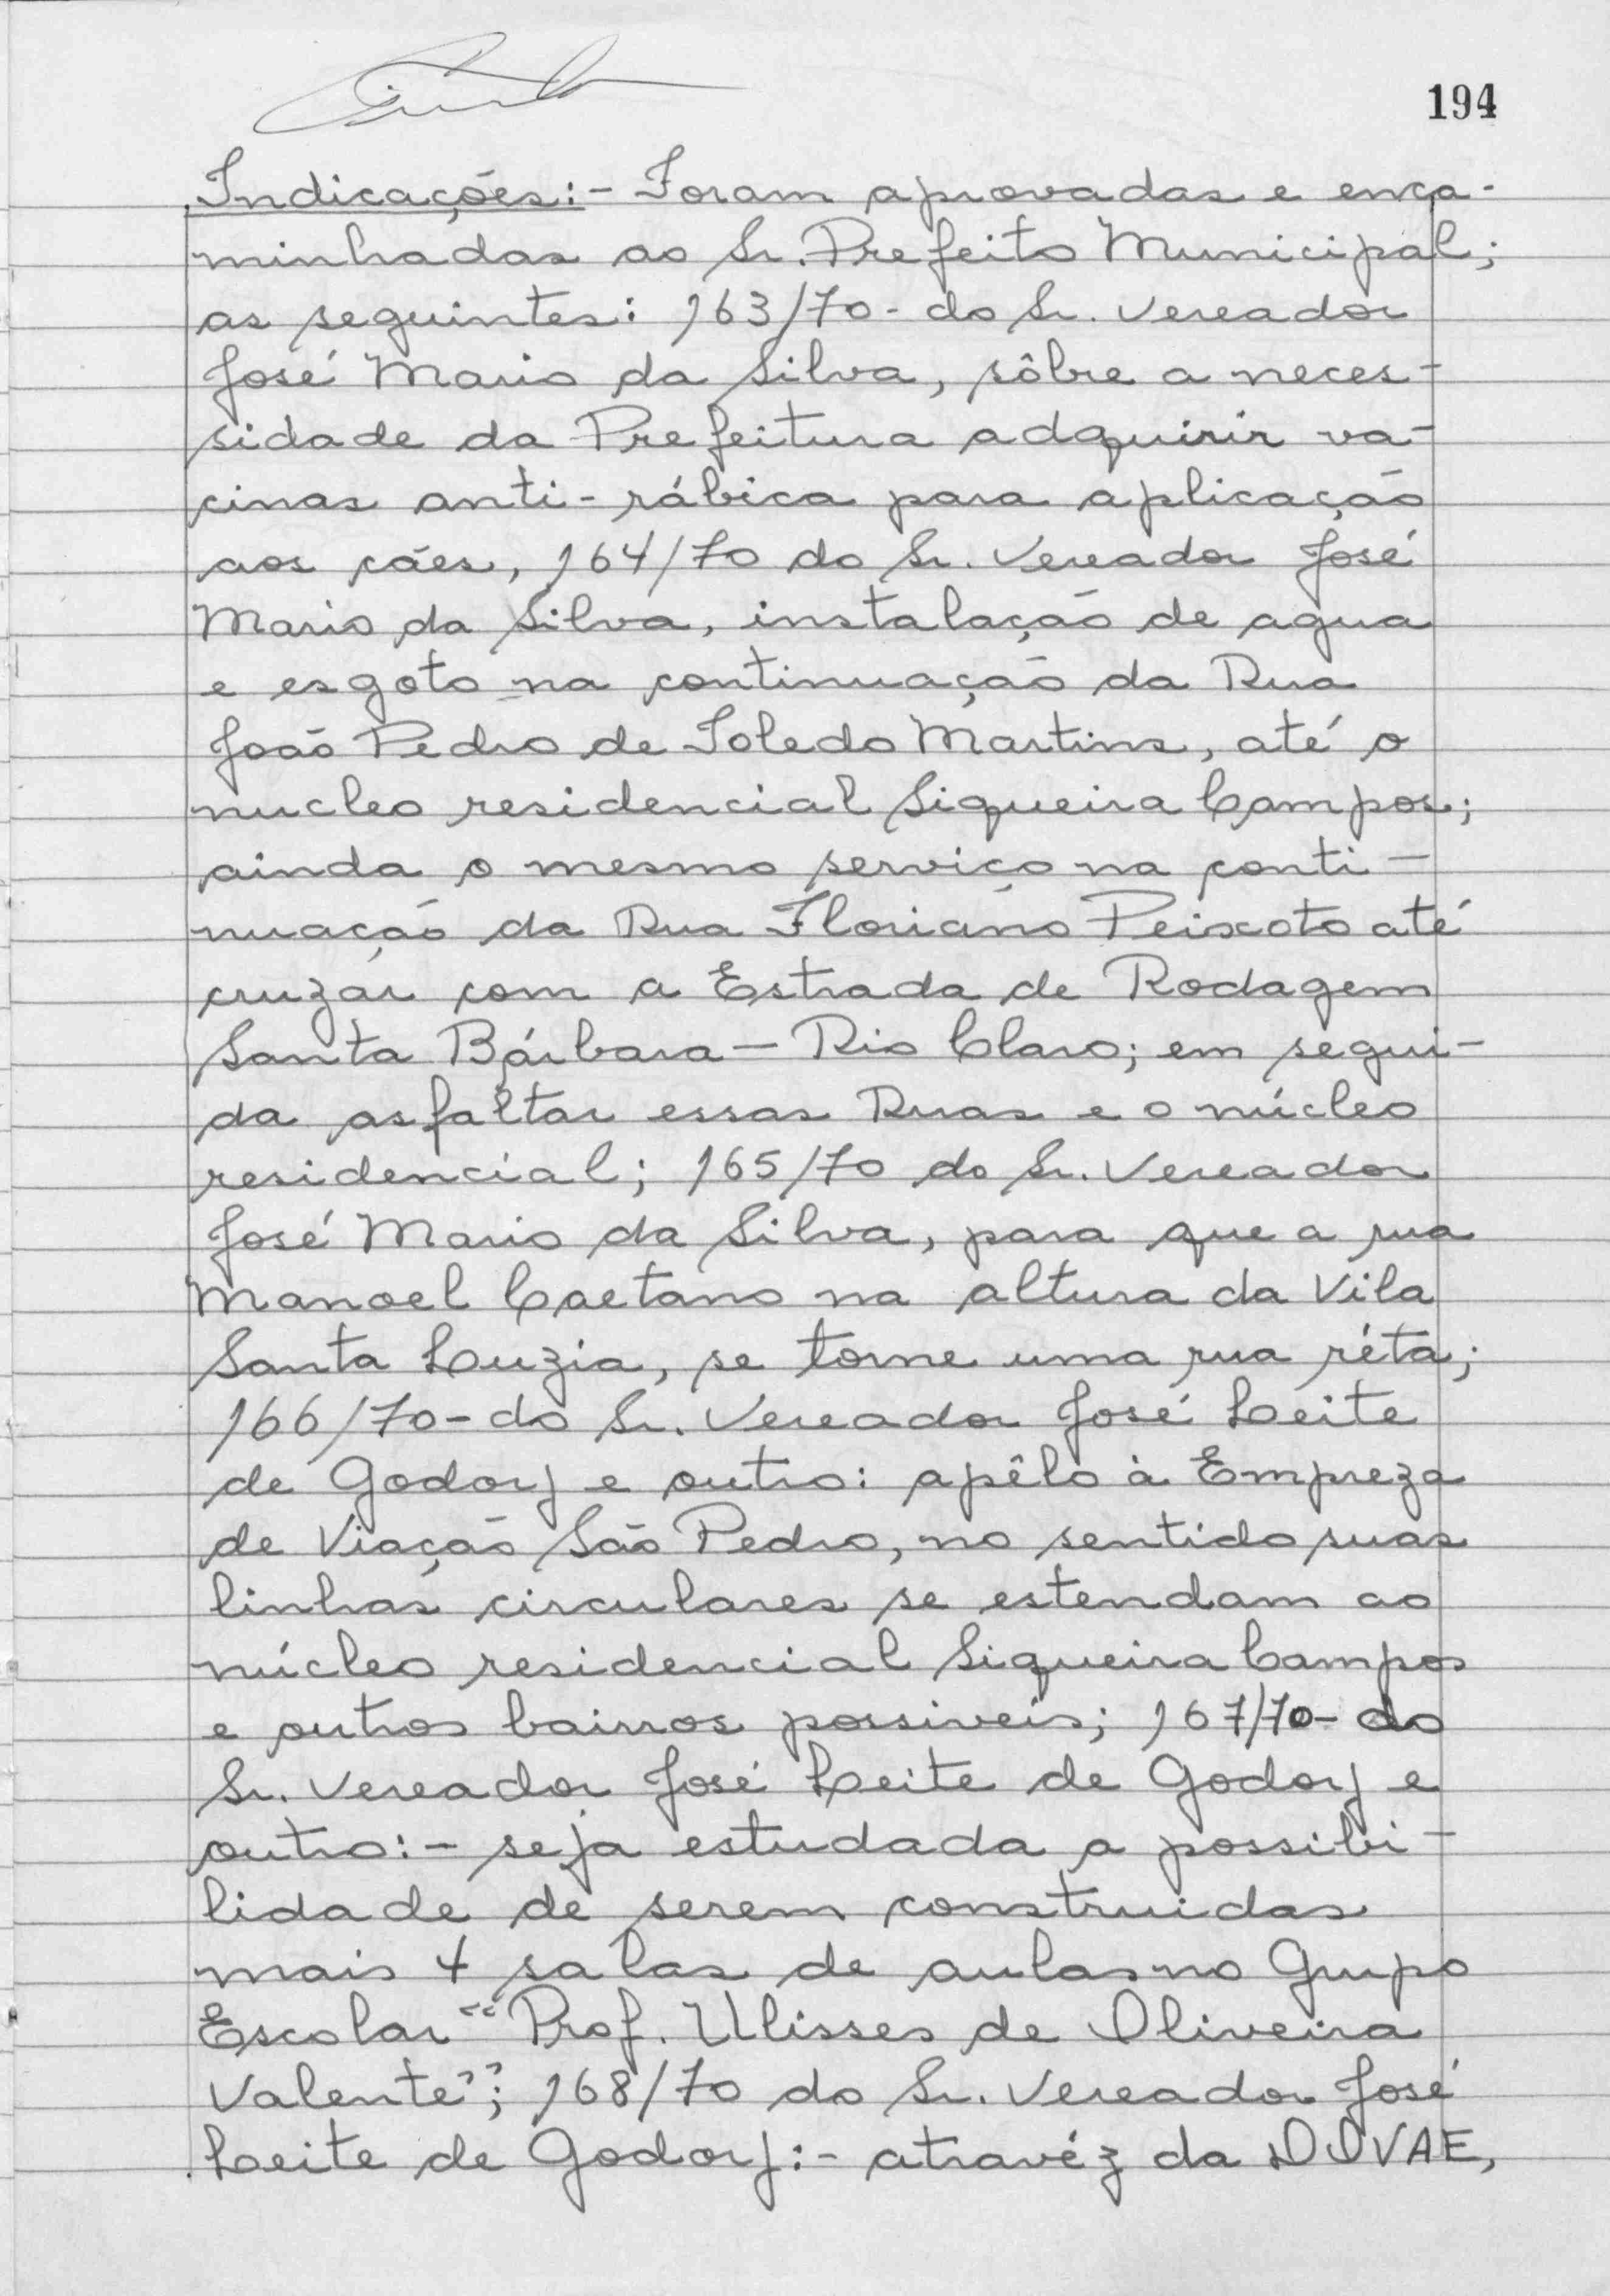 194
Indicações:- Foram aprovadas e enca-
minhadas ao Sr. Prefeito Municipal;
as seguintes: 163/70- do Sr. Vereador
José Mario da Silva, sôbre a neces-
sidade da Prefeitura adquirir va-
cinas anti-rábica para aplicação
aos cães, 164/70 do Sr. Vereador José
Mario da Silva, instalação de agua
e esgoto na continuação da Rua
João Pedro de Toledo Martins, até o
nucleo residencial Siqueira Campos;
ainda o mesmo serviço na conti-
nuação da Rua Floriano Peixoto até
cruzar com a Estrada de Rodagem
Santa Bárbara - Rio Claro; em segui-
da asfaltar essas Ruas e o núcleo
residencial; 165/70 do Sr. Vereador
José Mario da Silva, para que a rua
Manoel Caetano na altura da Vila
Santa Luzia, se torne uma rua réta;
166/70- do Sr. Vereador José Leite
de Godoy e outro: apêlo à Empreza
de Viação São Pedro, no sentido suas
linhas circulares se estendam ao
núcleo residencial Siqueira Campos
e outros bairros possiveis; 167/70- do
Sr. Vereador José Leite de Godoy e
outro:- seja estudada a possibi-
lidade de serem construidas
mais 4 salas de aulas no Grupo
Escolar "Prof. Ulisses de Oliveira
Valente"; 168/70 do Sr. Vereador José
Leite de Godoy:- atravéz da